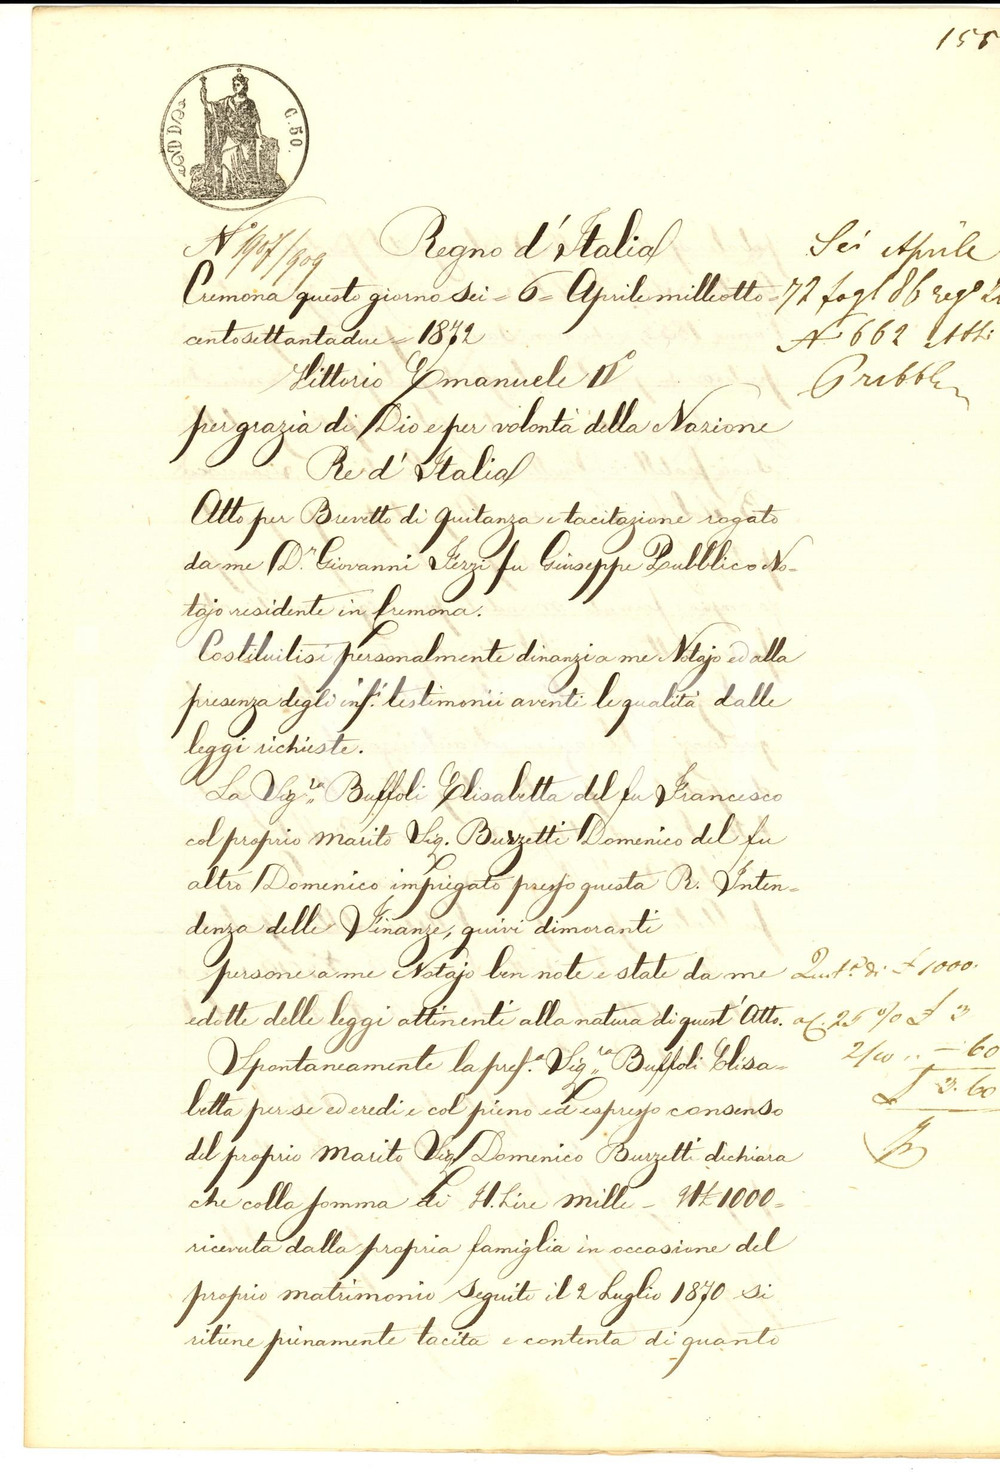 155
C. 50.
N.° 907/909
Regno d'Italia
Cremona questo giorno sei = 6 = Aprile milleotto=
centosettantadue = 1872
Vittorio Emanuele II°
per grazia di Dio e per volontà della Nazione
Re d'Italia
Atto per Brevetto di quitanza e tacitazione rogato
da me D.r Giovanni Terzi fu Giuseppe Pubblico No=
tajo residente in Cremona.
Costituitisi personalmente dinanzi a me Notajo ed alla
presenza degli inf.i testimonii aventi le qualità dalle
leggi richieste.
La Sig.ra Buffoli Elisabetta del fu Francesco
col proprio marito Sig. Burzetti Domenico del fu
altro Domenico impiegato presso questa R. Inten=
denza delle Finanze, quivi dimoranti
persone a me Notajo ben note e state da me
edotte delle leggi attinenti alla natura di quest'Atto.
Spontaneamente la pref.a Sig.ra Buffoli Elisa=
betta per se ed eredi e col pieno ed espresso consenso
del proprio marito Sig. Domenico Burzetti dichiara
che colla somma di It. Lire mille = It£ 1000=
ricevuta dalla propria famiglia in occasione del
proprio matrimonio seguito il 2 Luglio 1870 si
ritiene pienamente tacita e contenta di quanto
Sei Aprile
72 fogl 86 reg°
N 662 Atti
Quit.a di £ 1000.
25 % £ 3
2/10 .. — 60
£ 3.60